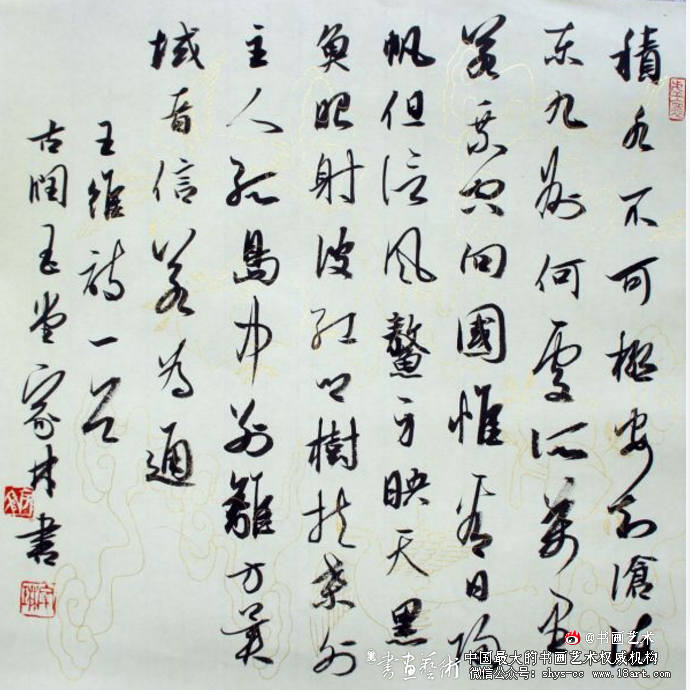 積水不可極安知滄海
東九州何處所萬里
若乘空向國惟看日歸
帆但信風鰲身映天黑
魚眼射波紅鄉樹扶桑外
主人孤島中別離方異
域音信若為通
王維詩一首
古潤玉堂家林書
@书画艺术
書畫藝術 中国最大的书画艺术权威机构
微信公众号：shys-cc www.18art.com